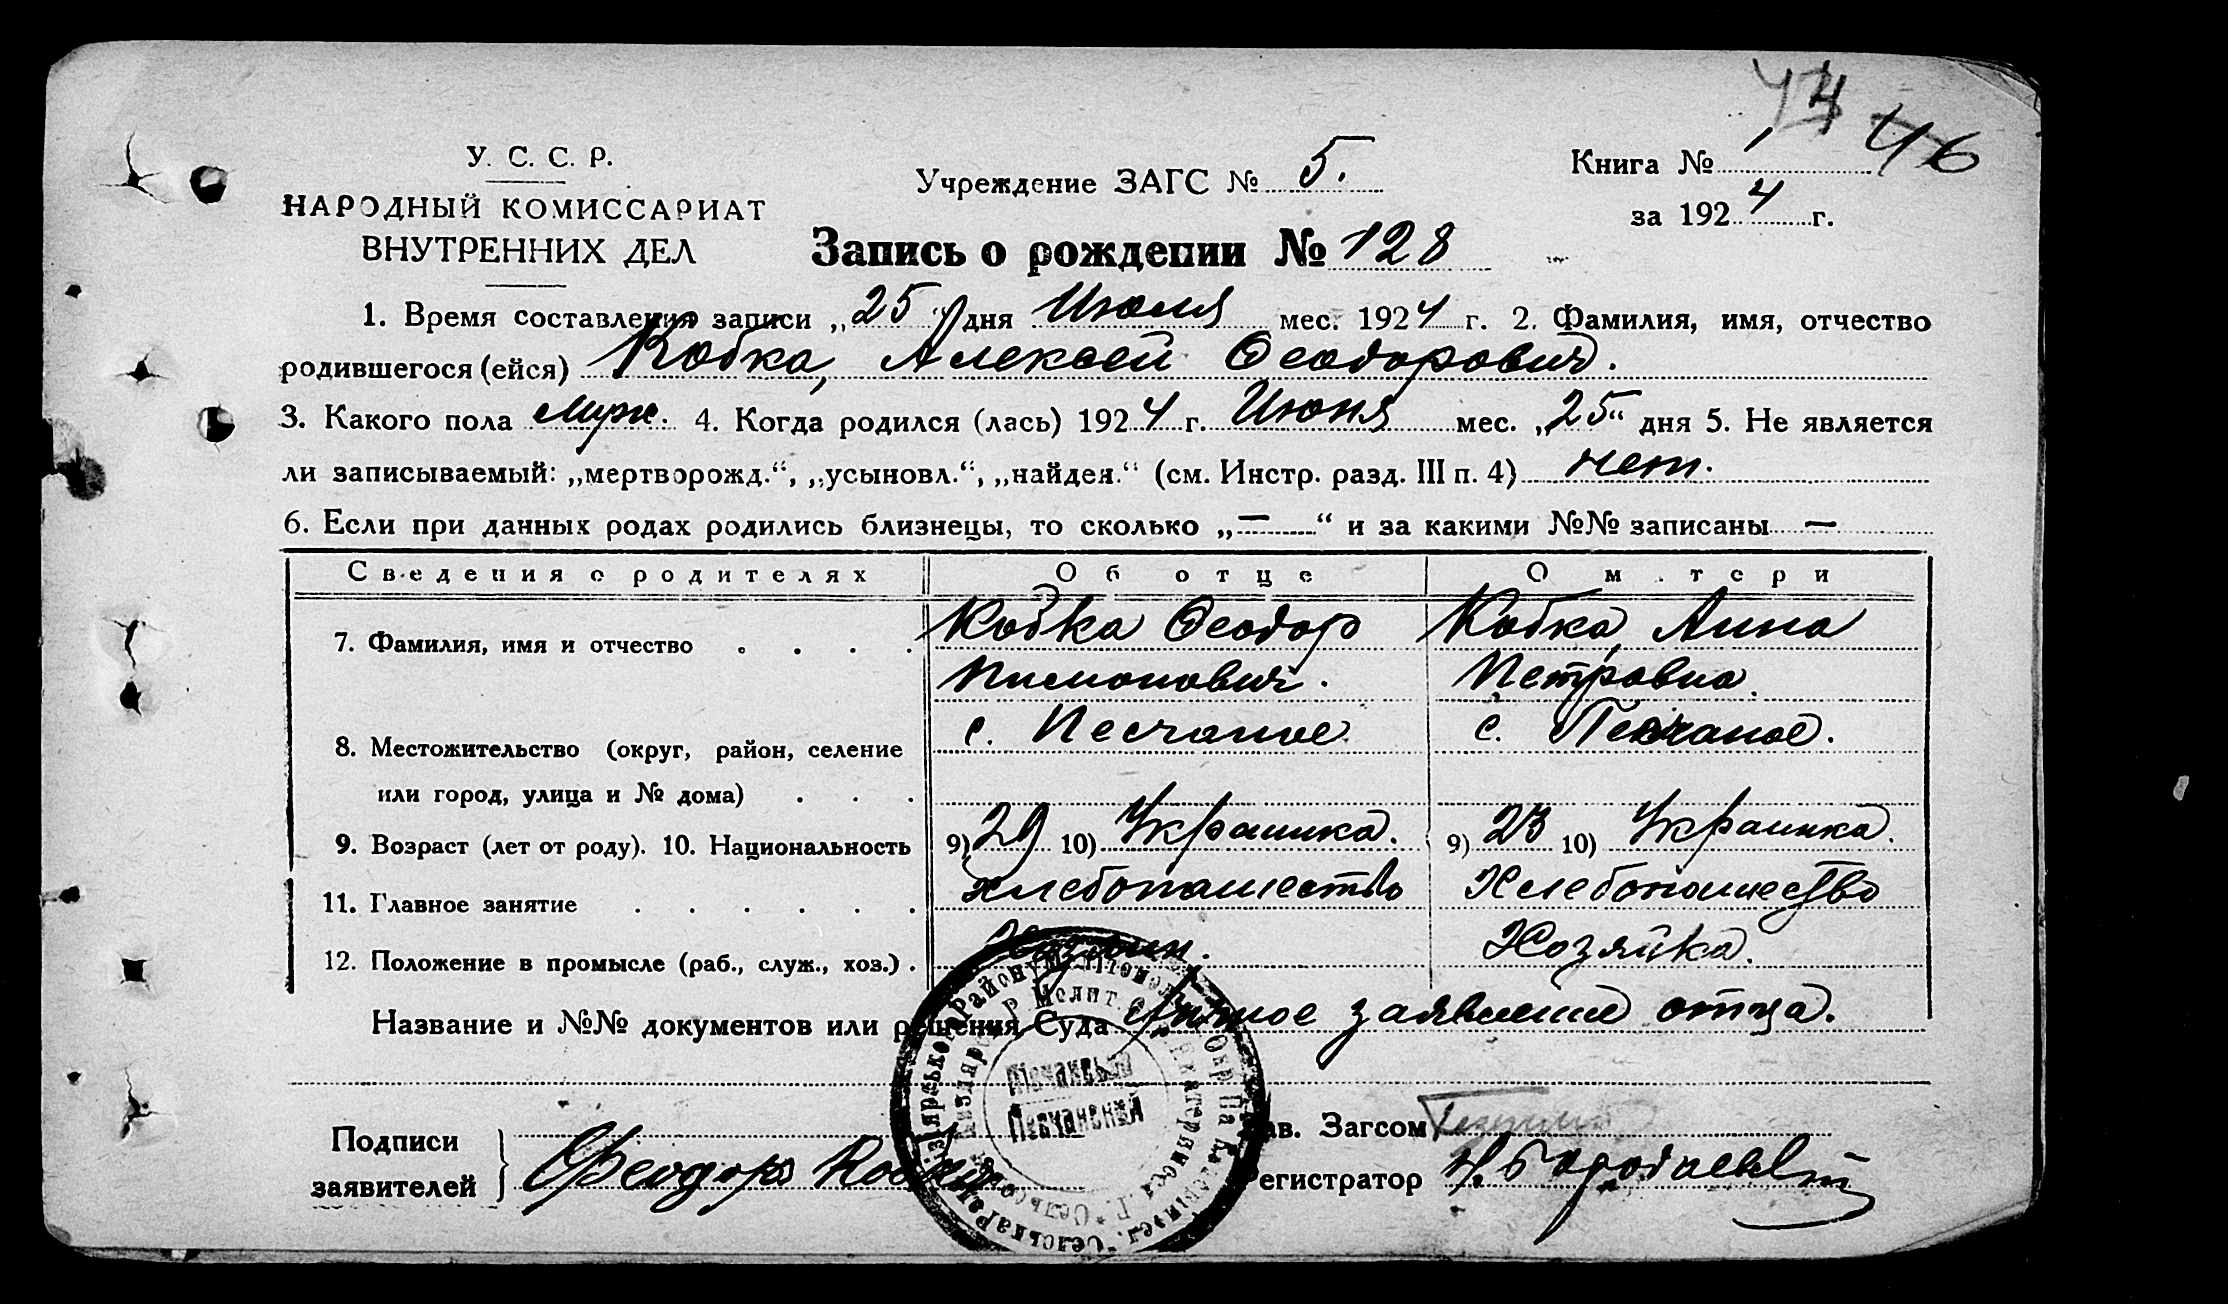 74 46
У. С. С. Р.
НАРОДНЫЙ КОМИССАРИАТ
ВНУТРЕННИХ ДЕЛ
Учреждение ЗАГС № 5.
Книга № 1
за 1924 г.
Запись о рождении № 128
1. Время составления записи „25“ дня Июля мес. 1924 г. 2. Фамилия, имя, отчество
родившегося (ейся) Кобка, Алексей Феодорович.
3. Какого пола муж. 4. Когда родился (лась) 1924 г. Июня мес. „25“ дня 5. Не является
ли записываемый: „мертворожд.“, „усыновл.“, „найден.“ (см. Инстр. разд. III п. 4) нет.
6. Если при данных родах родились близнецы, то сколько „—“ и за какими №№ записаны —
Сведения о родителях Об отце О матери
7. Фамилия, имя и отчество . . . . Кобка Феодор Кобка, Анна
Пимонович. Петровна.
8. Местожительство (округ, район, селение с. Песчаное с. Песчаное.
или город, улица и № дома) . . .
9. Возраст (лет от роду). 10. Национальность 9) 29 10) Украинка. 9) 23 10) Украинка.
11. Главное занятие . . . . . . хлебопашество Хлебопашество
12. Положение в промысле (раб., служ., хоз.) . Хозяин. Хозяйка.
Название и №№ документов или решения Суда Личное заявление отца.
Піщанський
Песчанский
Подписи
заявителей
Феодор Кобка
Зав. Загсом
Регистратор